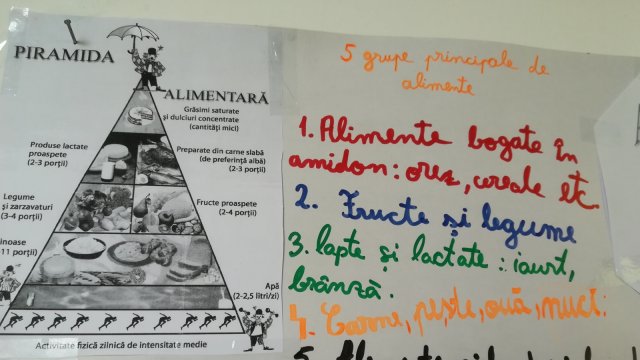 PIRAMIDA
ALIMENTARĂ
Grăsimi saturate
și dulciuri concentrate
(cantități mici)
Produse lactate
proaspete
(2-3 porții)
Preparate din carne slabă
(de preferință albă)
(2-3 porții)
Legume
și zarzavaturi
(3-4 porții)
Fructe proaspete
(2-4 porții)
inoase
11 porții)
Apă
(2-2,5 litri/zi)
Activitate fizică zilnică de intensitate medie
5 grupe principale de
alimente
1. Alimente bogate în
amidon: orez, cereale etc.
2. Fructe și legume
3. lapte și lactate: iaurt,
brânză.
4. Carne, pește, ouă, nuci.
5.